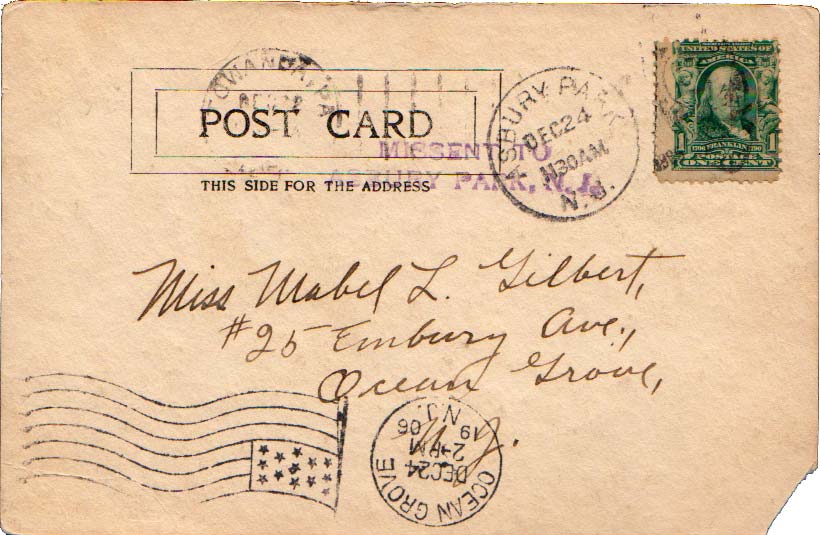 TOWANDA, PA.
POST CARD
THIS SIDE FOR THE ADDRESS
MISSENT TO
ASBURY PARK, N.J.
ASBURY PARK
DEC 24
11 30 AM
N.J.
UNITED STATES OF
AMERICA
1 FRANKLIN 1
POSTAGE
ONE CENT
Miss Mabel L. Gilbert,
#25 Embury Ave.,
Ocean Grove,
N.J.
OCEAN GROVE
DEC 24
2-PM
19 06
N.J.